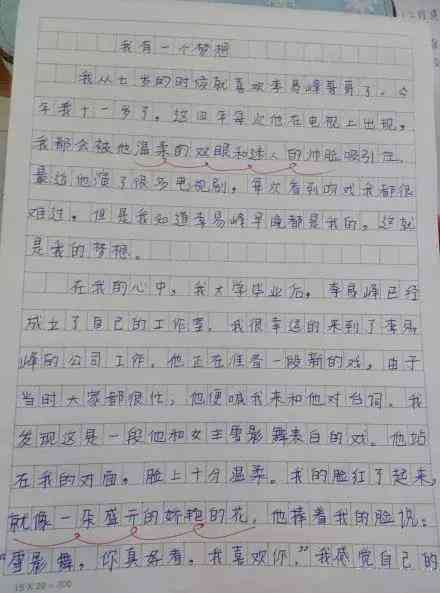 我有一个梦想
我从七岁的时候就喜欢李易峰哥哥了。今
年我十一岁了。这四年每次他在电视上出现，
我都会被他温柔的双眼和迷人的帅脸吸引住。
最近他演了很多电视剧，每次看到吻戏我都很
难过。但是我知道李易峰早晚都是我的。这就
是我的梦想。
在我的心中，我大学毕业后，李易峰已经
成立了自己的工作室。我很幸运的来到了李易
峰的公司工作。他正在准备一段新的戏，由于
当时大家都很忙，他便喊我来和他对台词。我
发现这是一段他和女主雪影舞表白的戏。他站
在我的对面，脸上十分温柔。我的脸红了起来，
就像一朵盛开的娇艳的花，他捧着我的脸说：
“雪影舞，你真好看，我喜欢你。”我感觉自己的
15×20=300